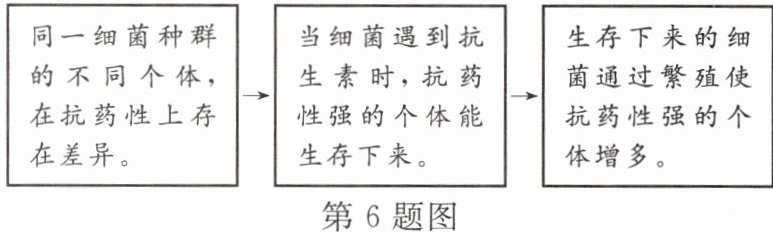 同一细菌种群
的不同个体，
在抗药性上存
在差异。
当细菌遇到抗
生素时，抗药
性强的个体能
生存下来。
生存下来的细
菌通过繁殖使
抗药性强的个
体增多。
第6题图